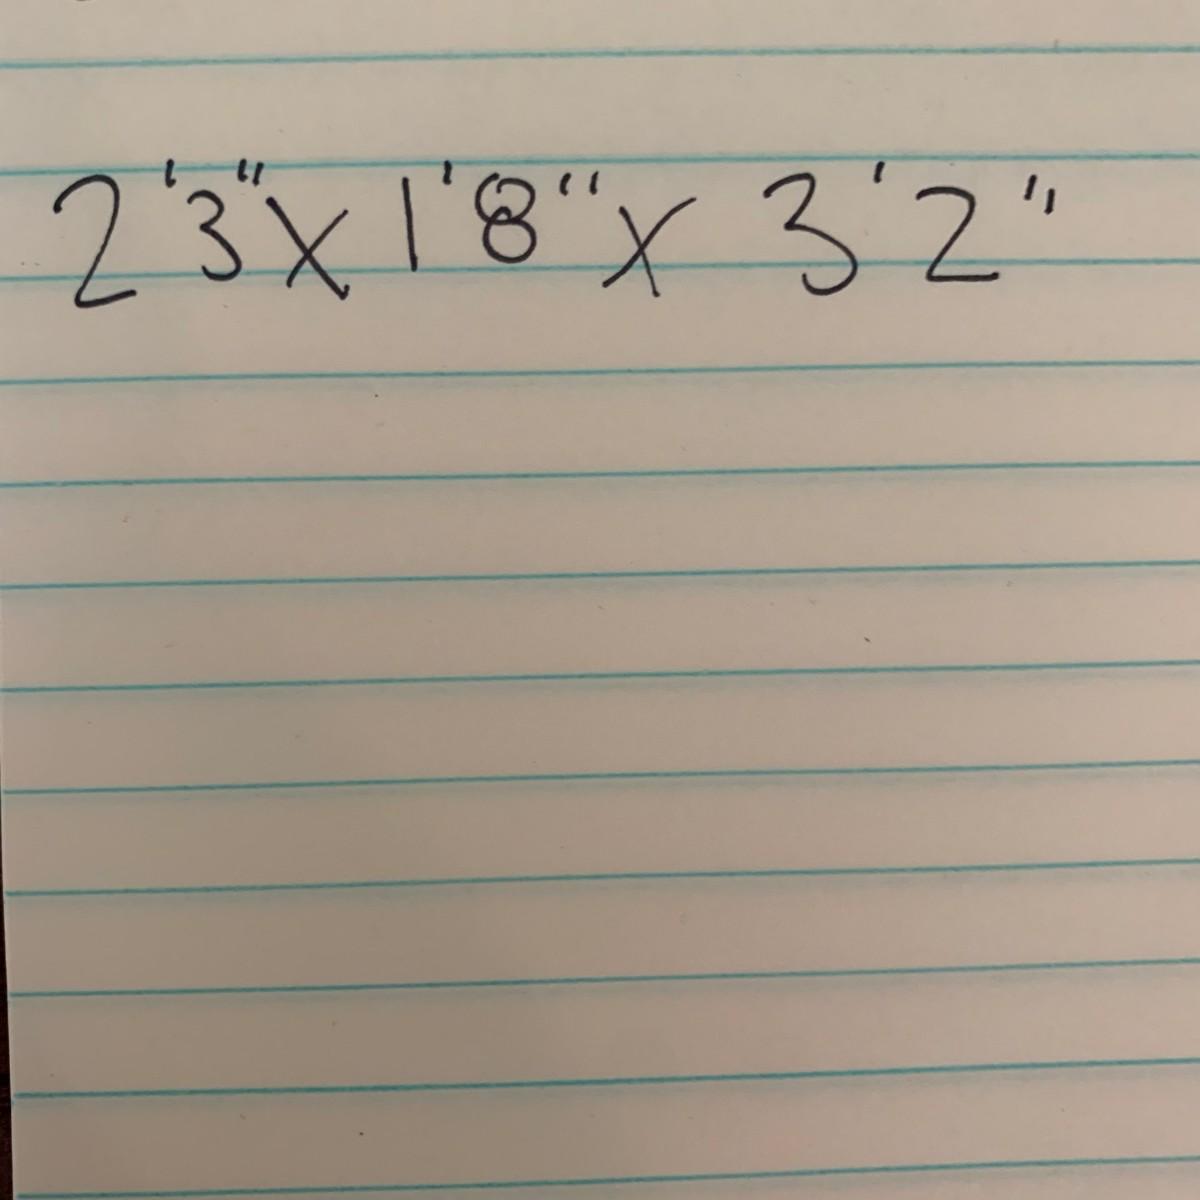 2'3" x 1'8" x 3'2"